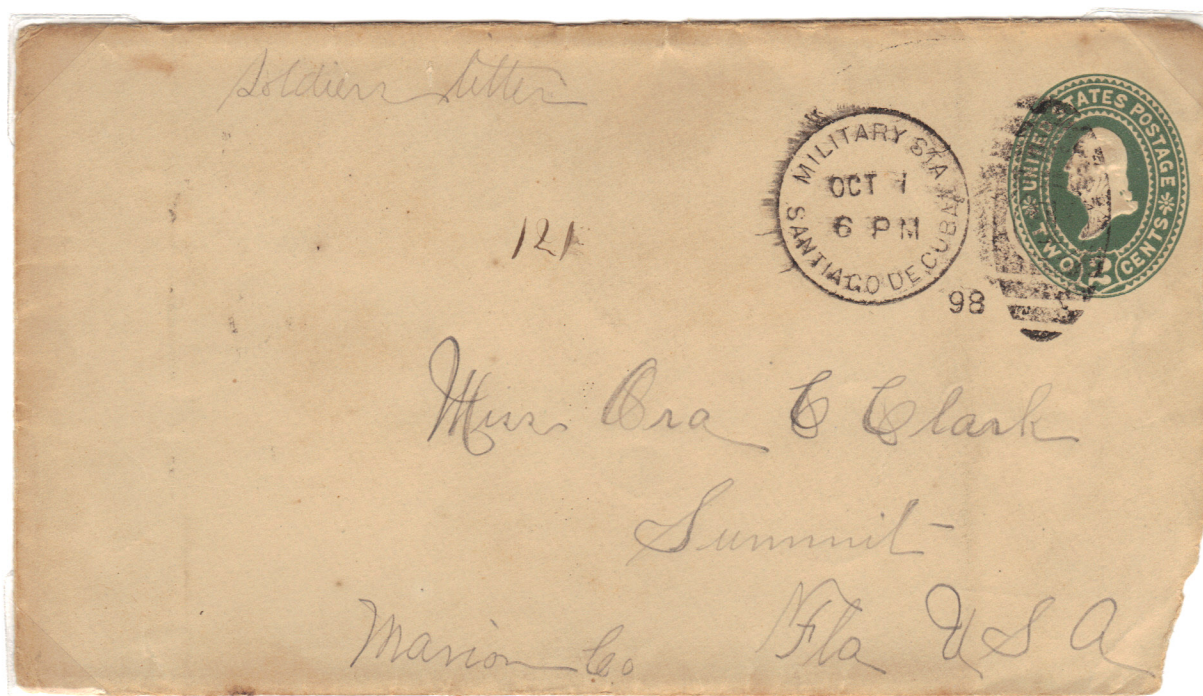 Soldiers letter
MILITARY STA.
OCT 1
6 PM
SANTIAGO DE CUBA
98
UNITED STATES POSTAGE
TWO 2 CENTS
121
Miss Ora C Clark
Summit
Marion Co Fla USA